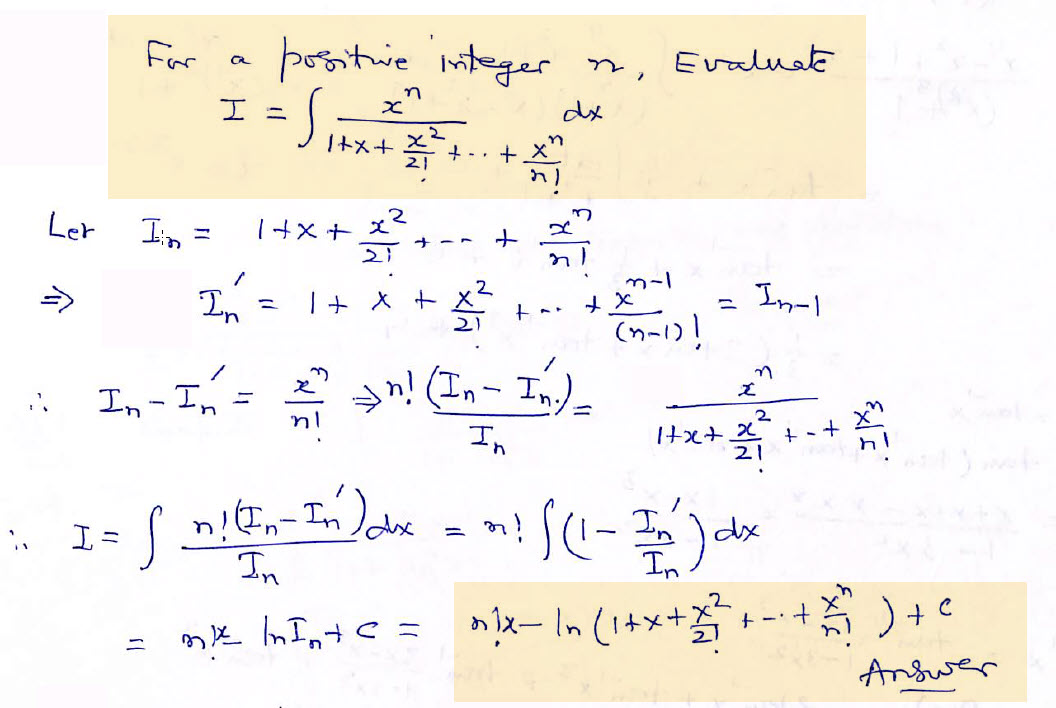 For a positive integer n, Evaluate
I = ∫ x^n / (1+x+ x^2/2! + .. + x^n/n!) dx
Let I_n = 1+x+ x^2/2! + -- + x^n/n!
⇒ I_n' = 1 + x + x^2/2! + -.. + x^(n-1)/(n-1)! = I_(n-1)
∴ I_n - I_n' = x^n/n! ⇒ n! (I_n - I_n')/I_n = x^n / (1+x+ x^2/2! + -.+ x^n/n!)
∴ I = ∫ n!(I_n - I_n')/I_n dx = n! ∫ (1 - I_n'/I_n) dx
= n!x - ln I_n + c = n!x - ln (1+x+ x^2/2! + -.. + x^n/n!) + c
Answer